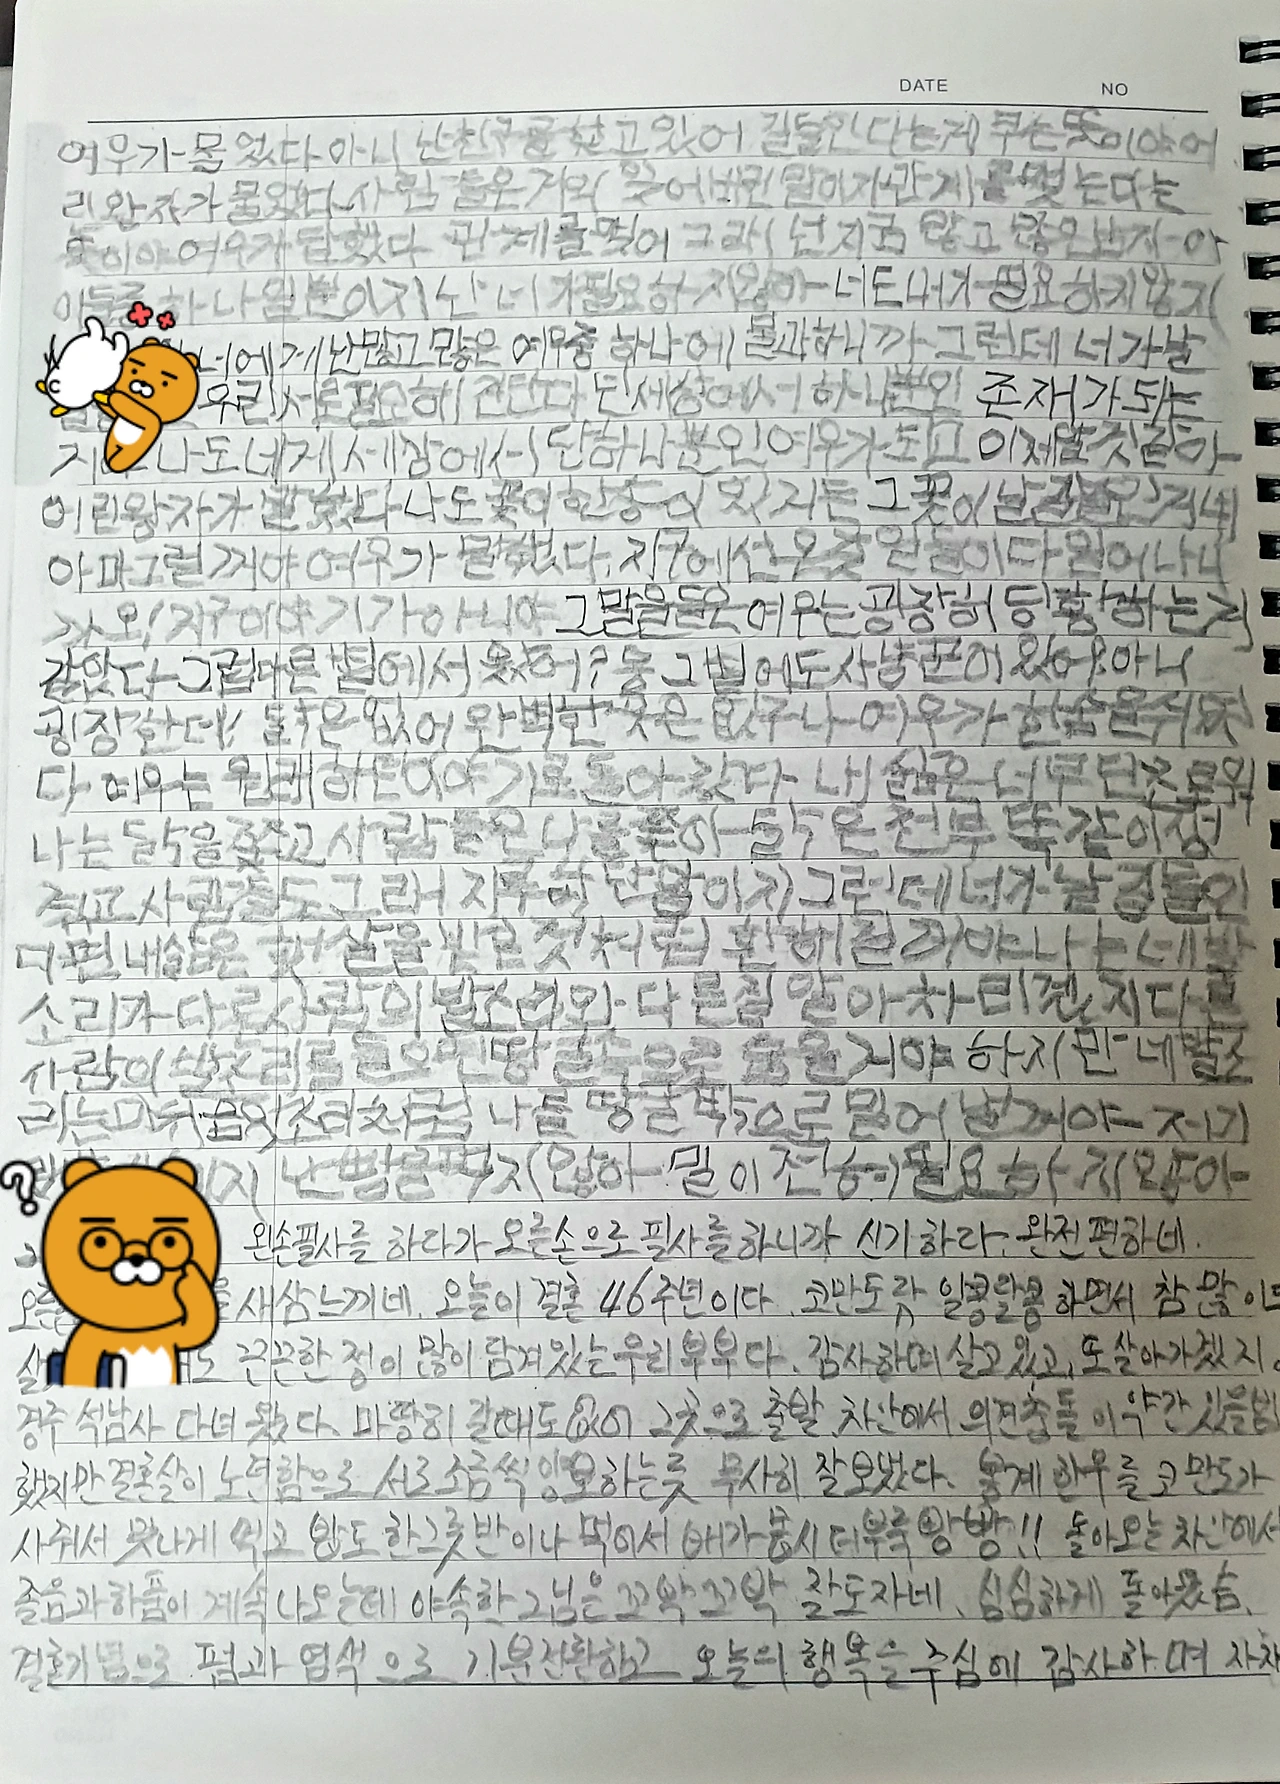 DATE NO
여우가 물었다 아니 난 친구를 찾고 있어 길들인다는게 무슨뜻이야 어
린왕자가 물었다 사람들은 거의 잊어버린 말이지 관계를 맺는다는
뜻이야 여우가 답했다 관계를 맺어 그래 넌 지금 많고 많은 남자 아
이들 하나일뿐이지 난 네가 필요하지 않아 너도 내가 필요하지 않지
너에게 난 많고 많은 여우중 하나에 불과하니까 그런데 너가 날
우린 서로 필요해 진단다 넌 세상에서 하나뿐인 존재가 되는
나도 네게 세상에서 단하나뿐인 여우가 되고 이제알것같아
어린왕자가 말했다 나도 꽃이 한송이 있지는 그꽃이 날 길들인거네
아마 그럴꺼야 여우가 말했다. 지구에선 온갖 일들이 다 일어나니
까 오! 지구 이야기가 아니야 그말을 들은 여우는 굉장히 당황하는거
같았다 그럼 다른 별에서 왔어? 응 그별에도 사냥꾼이 있어? 아니
굉장한데! 닭은 없어 완벽한 곳은 없구나 여우가 한숨을 쉬었
다 여우는 원래 하던 이야기로 돌아갔다 내 삶은 너무 단조로워
나는 닭을 쫓고 사람들은 나를 쫓아 닭은 전부 똑같이 생
겼고 사람들도 그래 지루한 삶이지 그런데 너가 날 길들인
다면 내삶은 햇살을 받은 것처럼 환해질 거야 나는 네발
소리가 다른사람의 발소리와 다른걸 알아차리겠지 다른
사람의 발소리를 들으면 땅굴속으로 숨을거야 하지만 네발소
리는 마치 음악소리처럼 나를 땅굴 밖으로 불어 낼거야 저기
난 빵을 먹지 않아 밀이 전혀 필요하지 않아
왼손필사를 하다가 오른손으로 필사를 하니까 신기하라. 완전 편하네.
새삼 느끼네. 오늘이 결혼 46주년이다. 코만도랑 알콩달콩 하면서 참 많이도
끈끈한 정이 많이 담겨있는 우리부부다. 감사하며 살고 있고, 또 살아가겠지.
경주 석남사 다녀 왔다. 마땅히 갈때도 없어 그곳으로 출발. 차안에서 의견충돌이 약간 있을뻔
했지만 결혼살이 노련함으로 서로 조금씩 양보하는듯 무사히 잘 보냈다. 물계 한우를 코만도가
사줘서 맛나게 먹고 밥도 한그릇 반이나 먹어서 배가 몹시 더부룩 빵빵!! 돌아오는 차안에서
졸음과 하품이 계속 나오는데 야속한 그님은 꼬박꼬박 잘도 자네. 심심하게 돌아왔슴.
결혼기념으로 펌과 염색으로 기분전환하고 오늘의 행복을 주심에 감사하며 자자